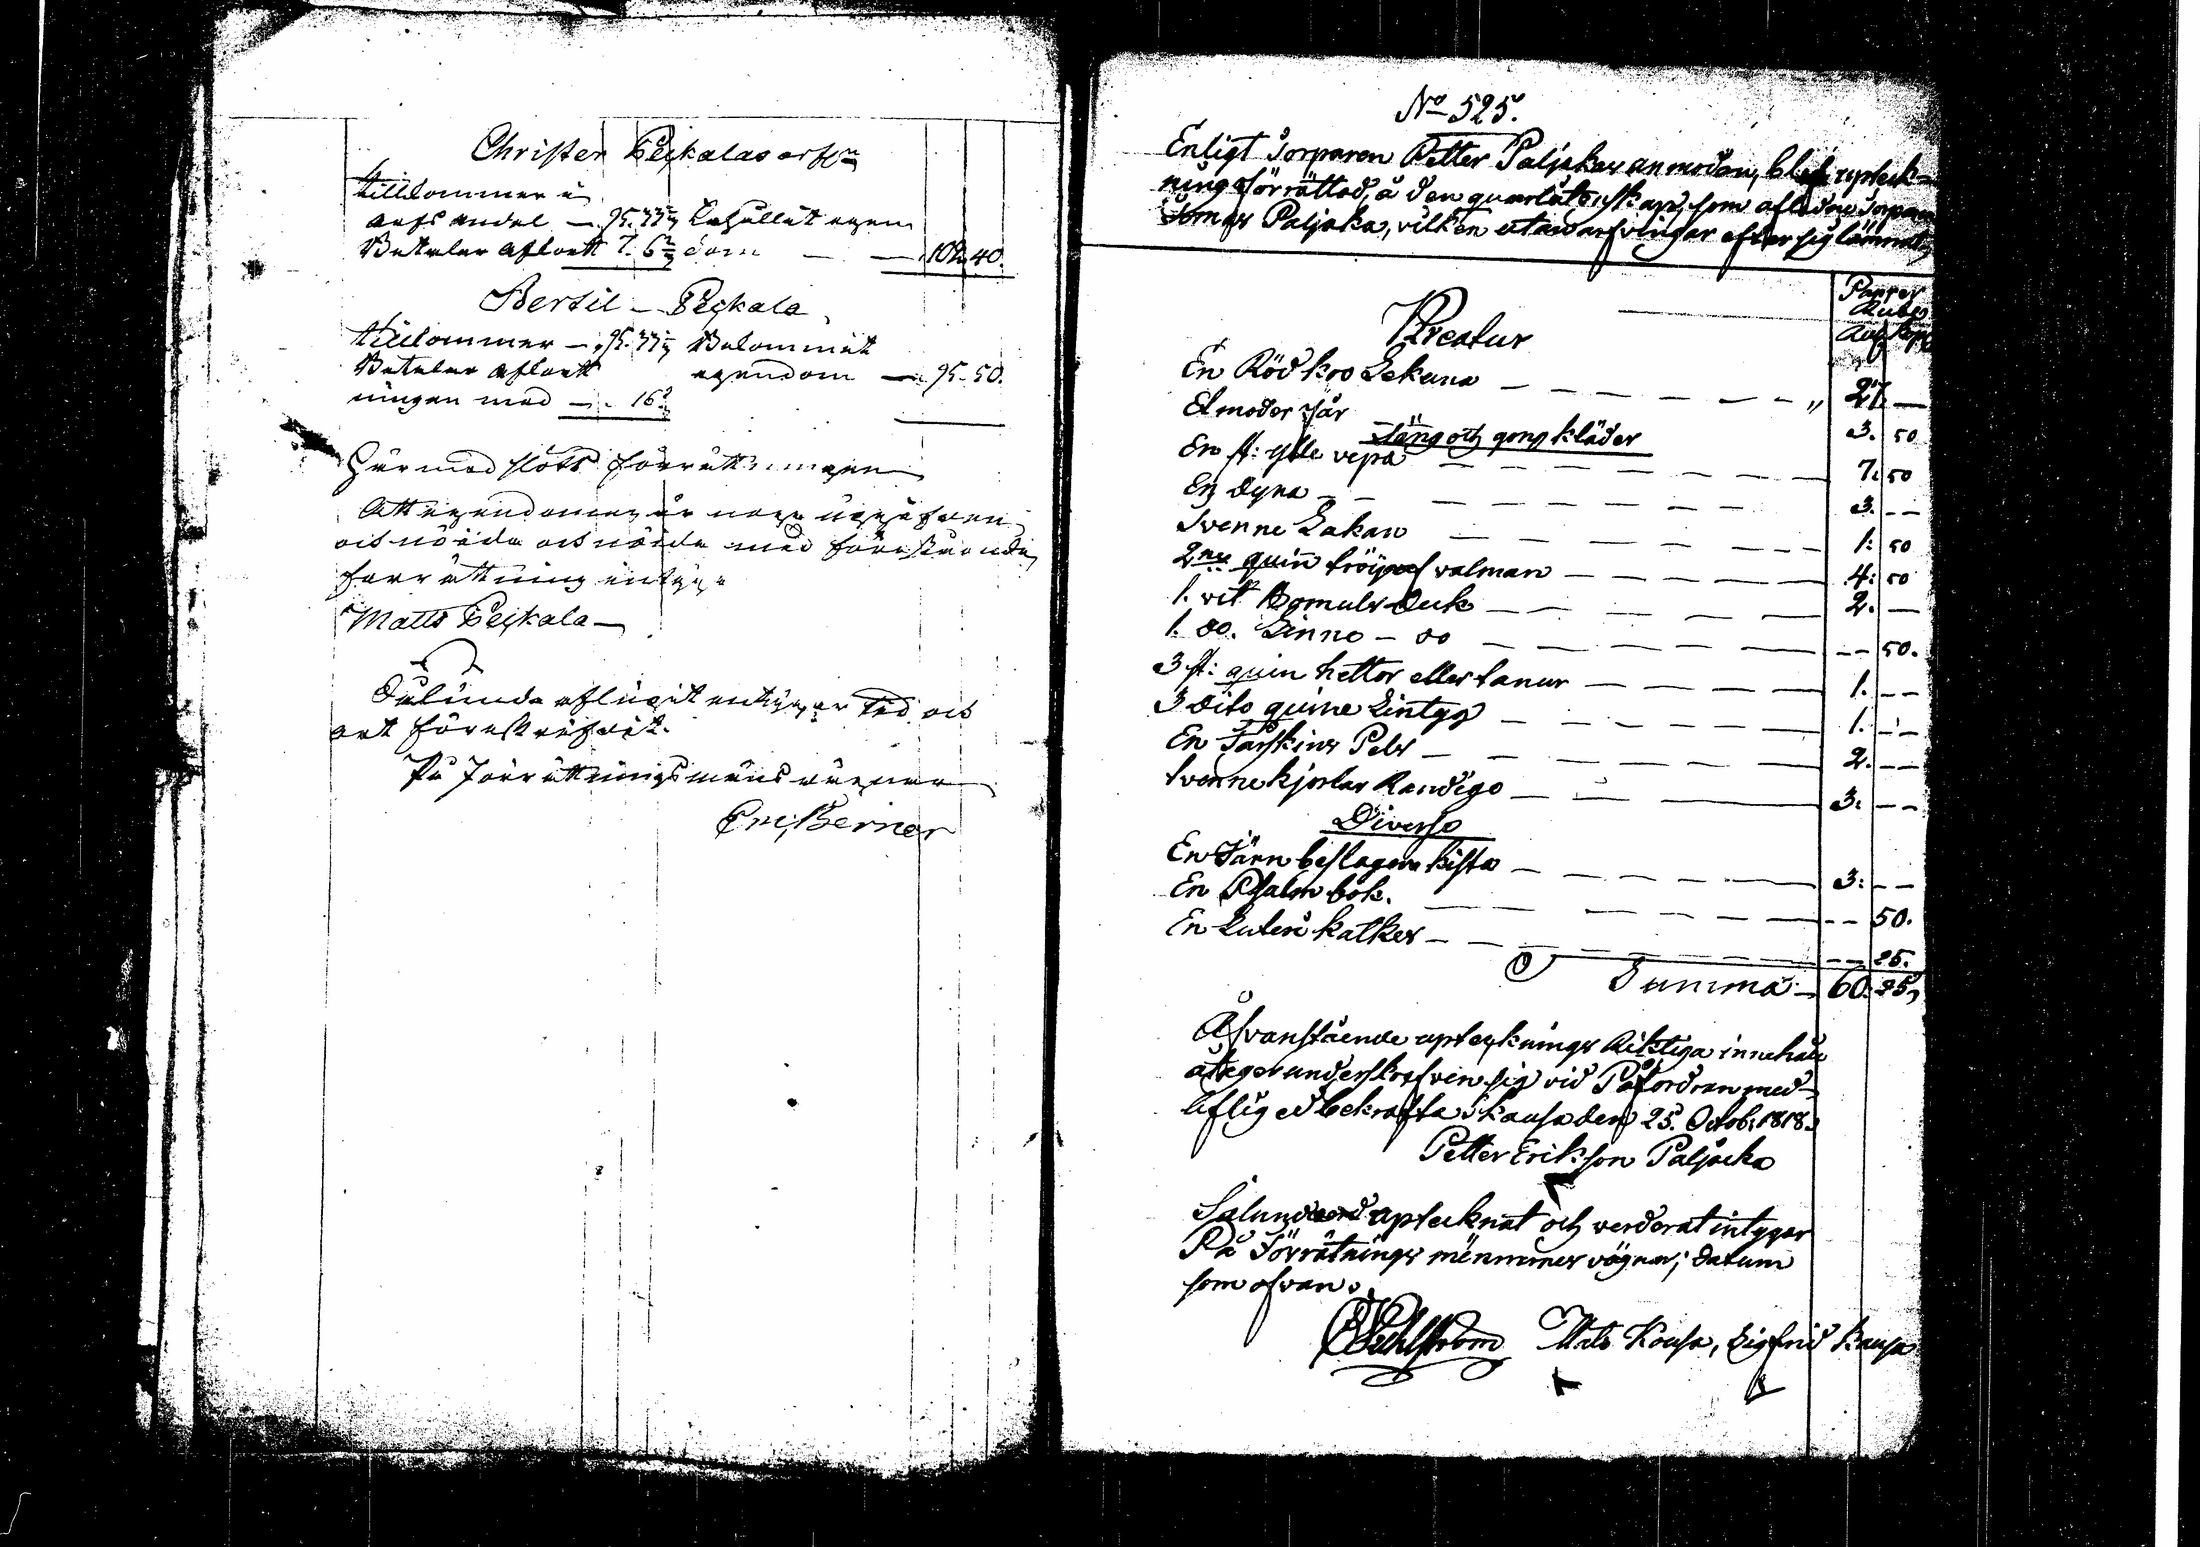 Christer Peskalas arf
tillkommer i
arfs andel — 95.33 behållit egen
Betalar afkort 7. 6 dom — — 102. 40.
Bertil — Peskala
tillkommer — 95. 33 Bekommit
Betalar afkort egendom — 95. 50.
ningen med — 16
Härmed slöts förrättningen
Att egendomen är noga uppgifven
och nöida och nöida med förestående
förrättning intyga
Matts Peskala —
Sålunda aflupit intygar tid och
ort föreskrifvit.
På Förrättningsmäns vägnar
Eric Berner
No 525.
Enligt Torparen Petter Paljakas anmodan, blef uptek-
ning förrättad, å den quarlåtenskap, som aflidne Torparen
Tomas Paljaka, vilken utan arfvingar efter sig lämnat,
Papper
Rubel
Rub kop
Kreatur
En Röd ko Lekuna — — — — " 27. —
Et moder får 3. 50
Säng och gong kläder
En st: ylle vepa — — — — 7. 50
En dyna — — — — 3. — —
Tvenne Lakan — — — — 1: 50
2ne quin tröijor valman — — — — 4: 50
1. vit Bomuls duk — — — — 2. —
1. do. Linne — do — — — — — 50.
3 st: quin hettor eller tanur — — — — 1. — —
3 dito quine Lintyg — — — — 1. — —
En Fårskins Pels — — — — 2. — —
tvenne kjortlar Randige — — — 3: — —
Diverse
En Järn beslagen kista — — — — 3: — —
En Psalm bok. — — — — — — 50.
En Luten katkes — — — — — 25.
Summa — 60. 25,
Åfvanstående upteknings Riktiga innehåll
åteger underskrefven sig vid Påfordran med
liflig ed bekräfta i kausa den 25. Octob: 1818.
Petter Erikson Paljacka
Sålunda uptecknat och verderat intygar
På Förrätnings männernes vägnar; datum
som ofvan.
Mats Kausa, Sigfrid Kausa